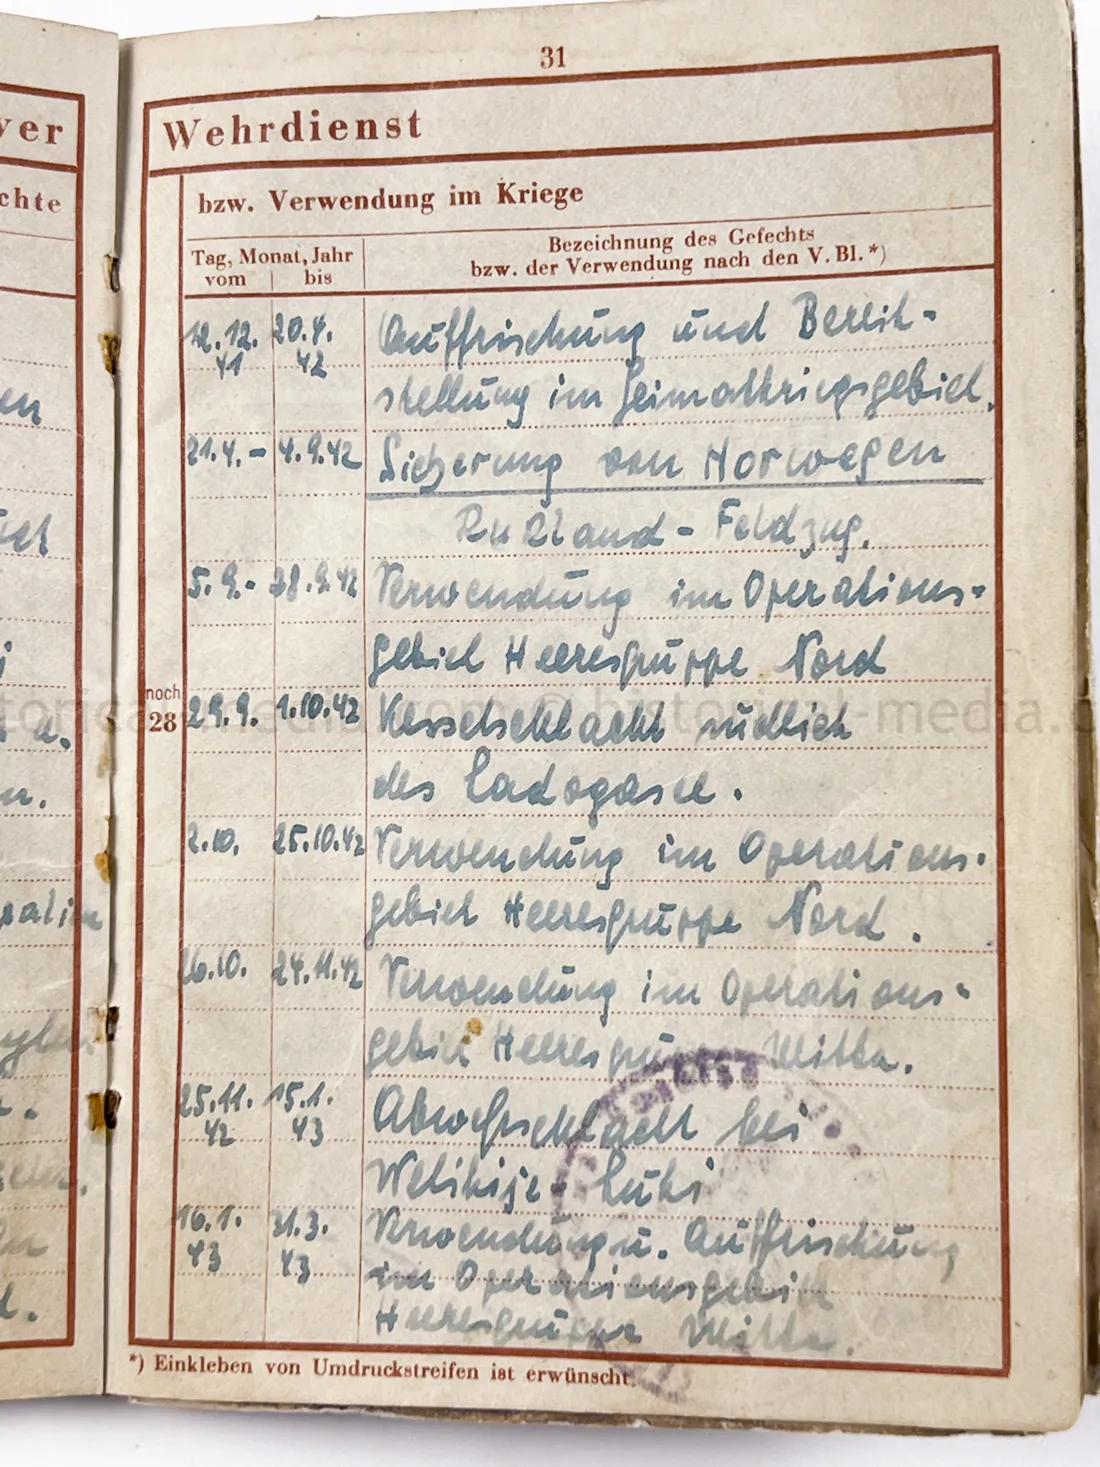 31
ver
Wehrdienst
chte
bzw. Verwendung im Kriege
Tag, Monat, Jahr
vom | bis
Bezeichnung des Gefechts
bzw. der Verwendung nach den V. Bl. *)
12.12. 20.4. Auffrischung und Bereit-
41 42
stellung im Heimatkriegsgebiet.
21.4. - 4.9.42 Sicherung von Norwegen
Rußland - Feldzug.
5.9. - 28.9.42 Verwendung im Operations-
gebiet Heeresgruppe Nord
noch
28
29.9. 1.10.42 Kesselschlacht südlich
des Ladogasee.
2.10. 25.10.42 Verwendung im Operations-
gebiet Heeresgruppe Nord.
26.10. 24.11.42 Verwendung im Operations-
gebiet Heeresgruppe Mitte.
25.11. 15.1. Abwehrschlacht bei
42 43
Welikije-Luki
16.1. 31.3. Verwendung u. Auffrischung
43 43
im Operationsgebiet
Heeresgruppe Mitte.
*) Einkleben von Umdruckstreifen ist erwünscht.
© historical-media.c